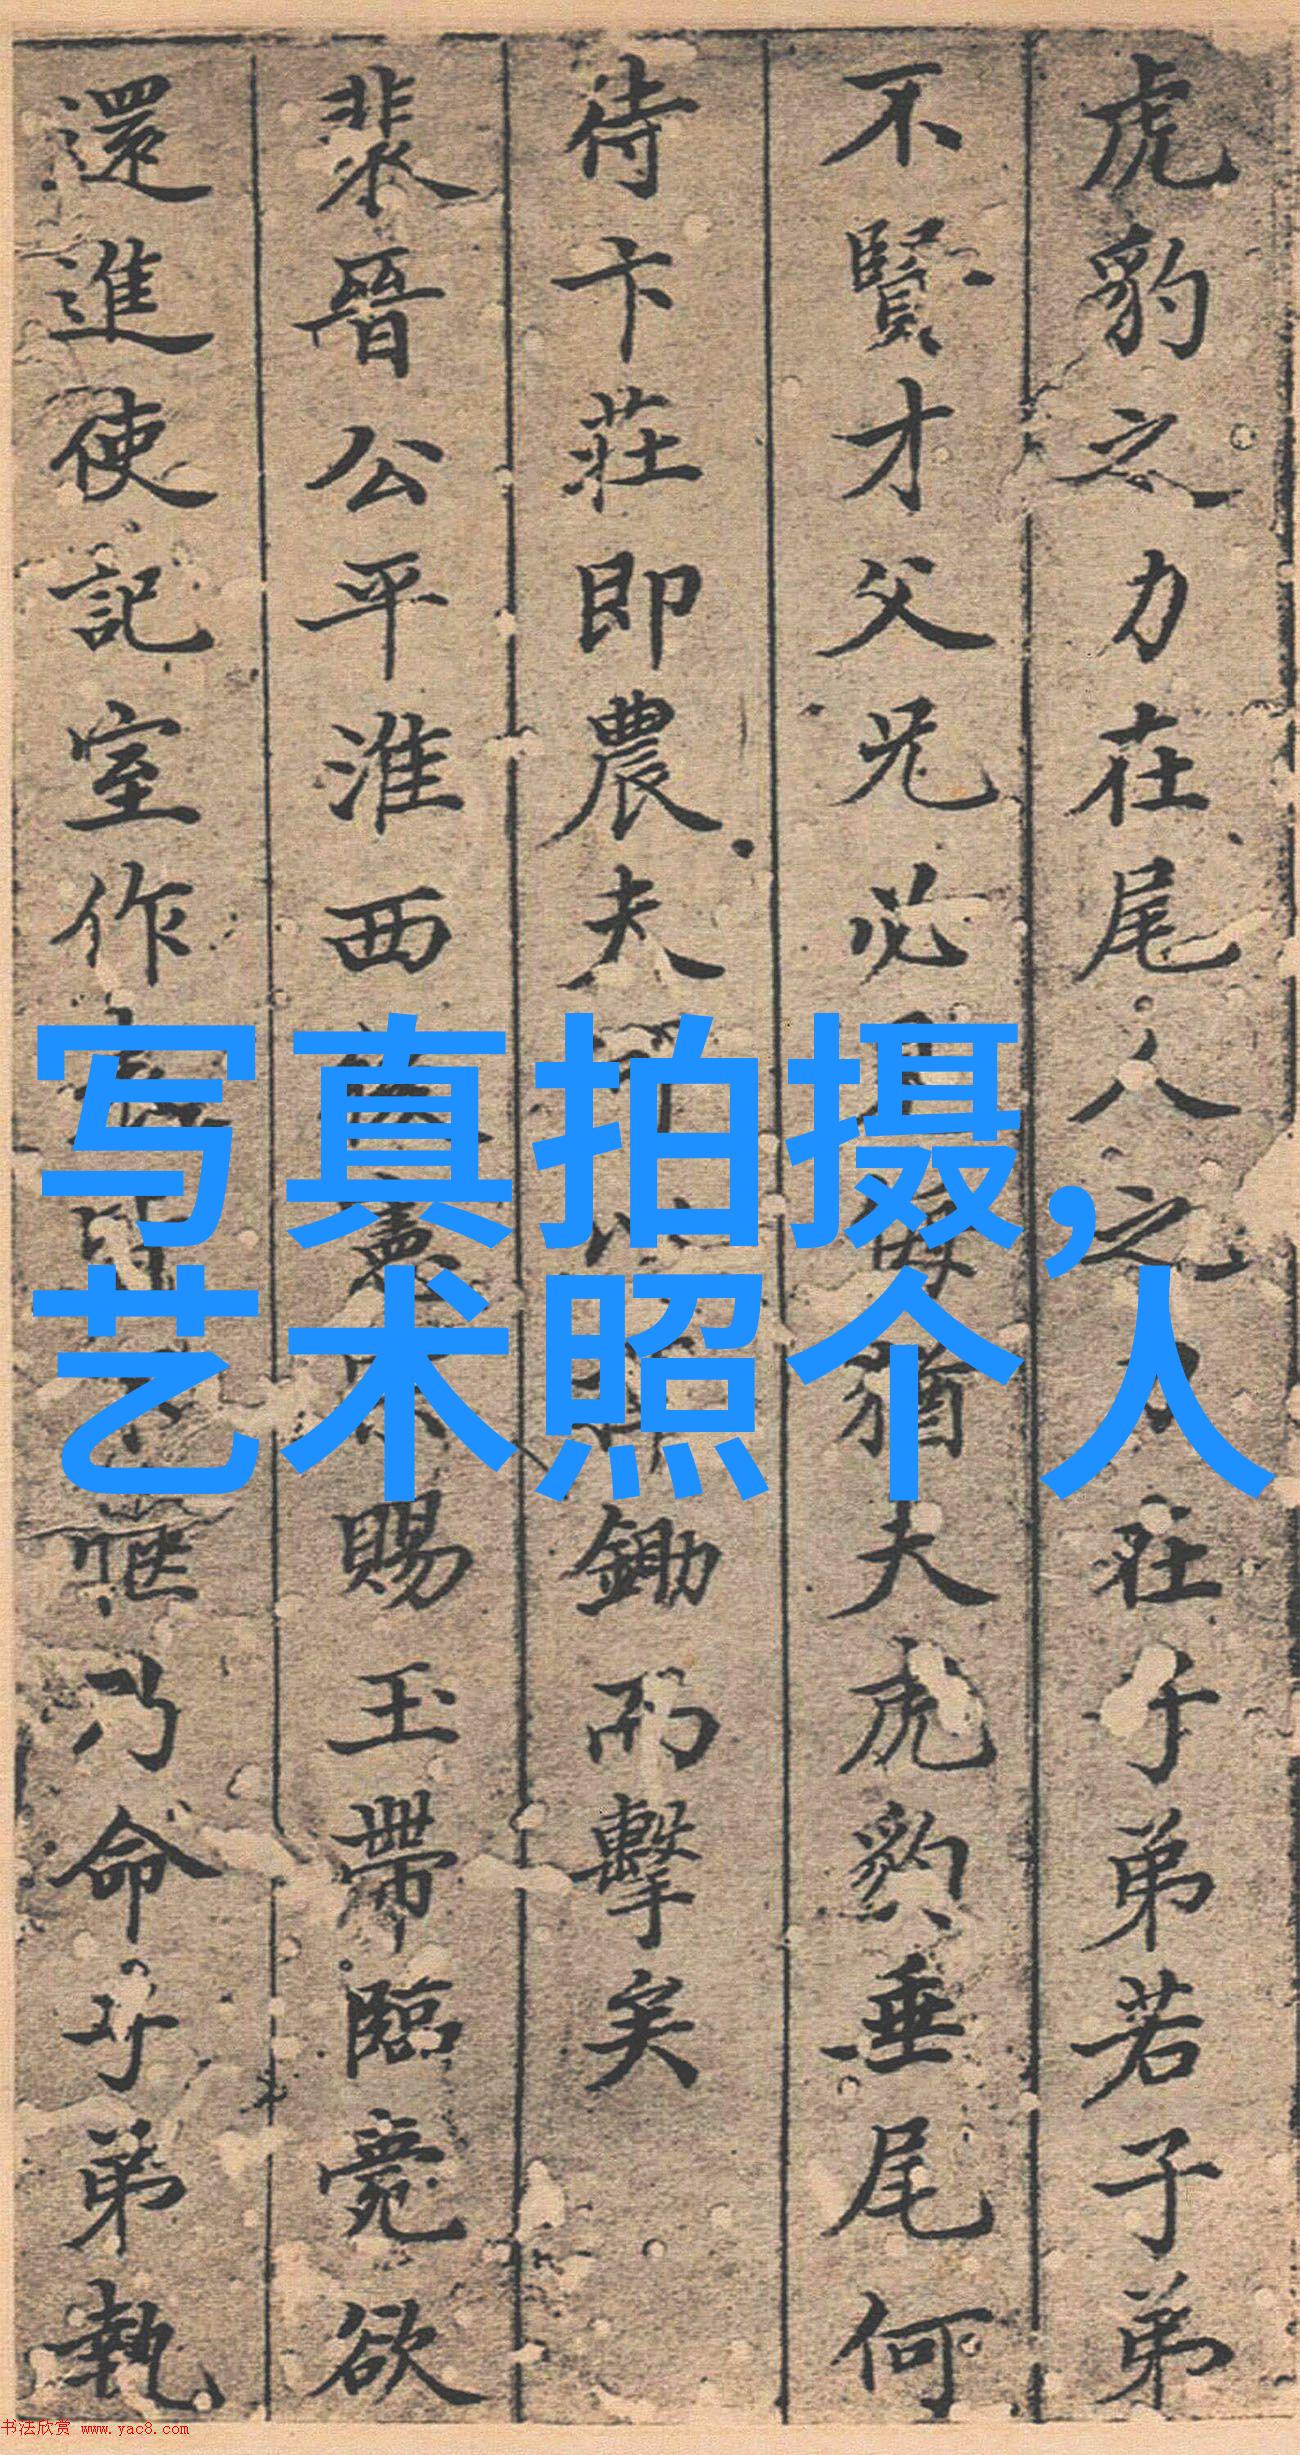 虎豹之力在尾人之在子弟若子弟
不賢才父兄必侮猶夫虎豹垂尾何
待卞莊即農夫鋤而擊矣
裴晉公平淮西後憲賜玉帶臨薨欲
還進使記室作愜乃命子弟執
写真拍摄,
艺术照个人
书法欣赏 www.yac8.com